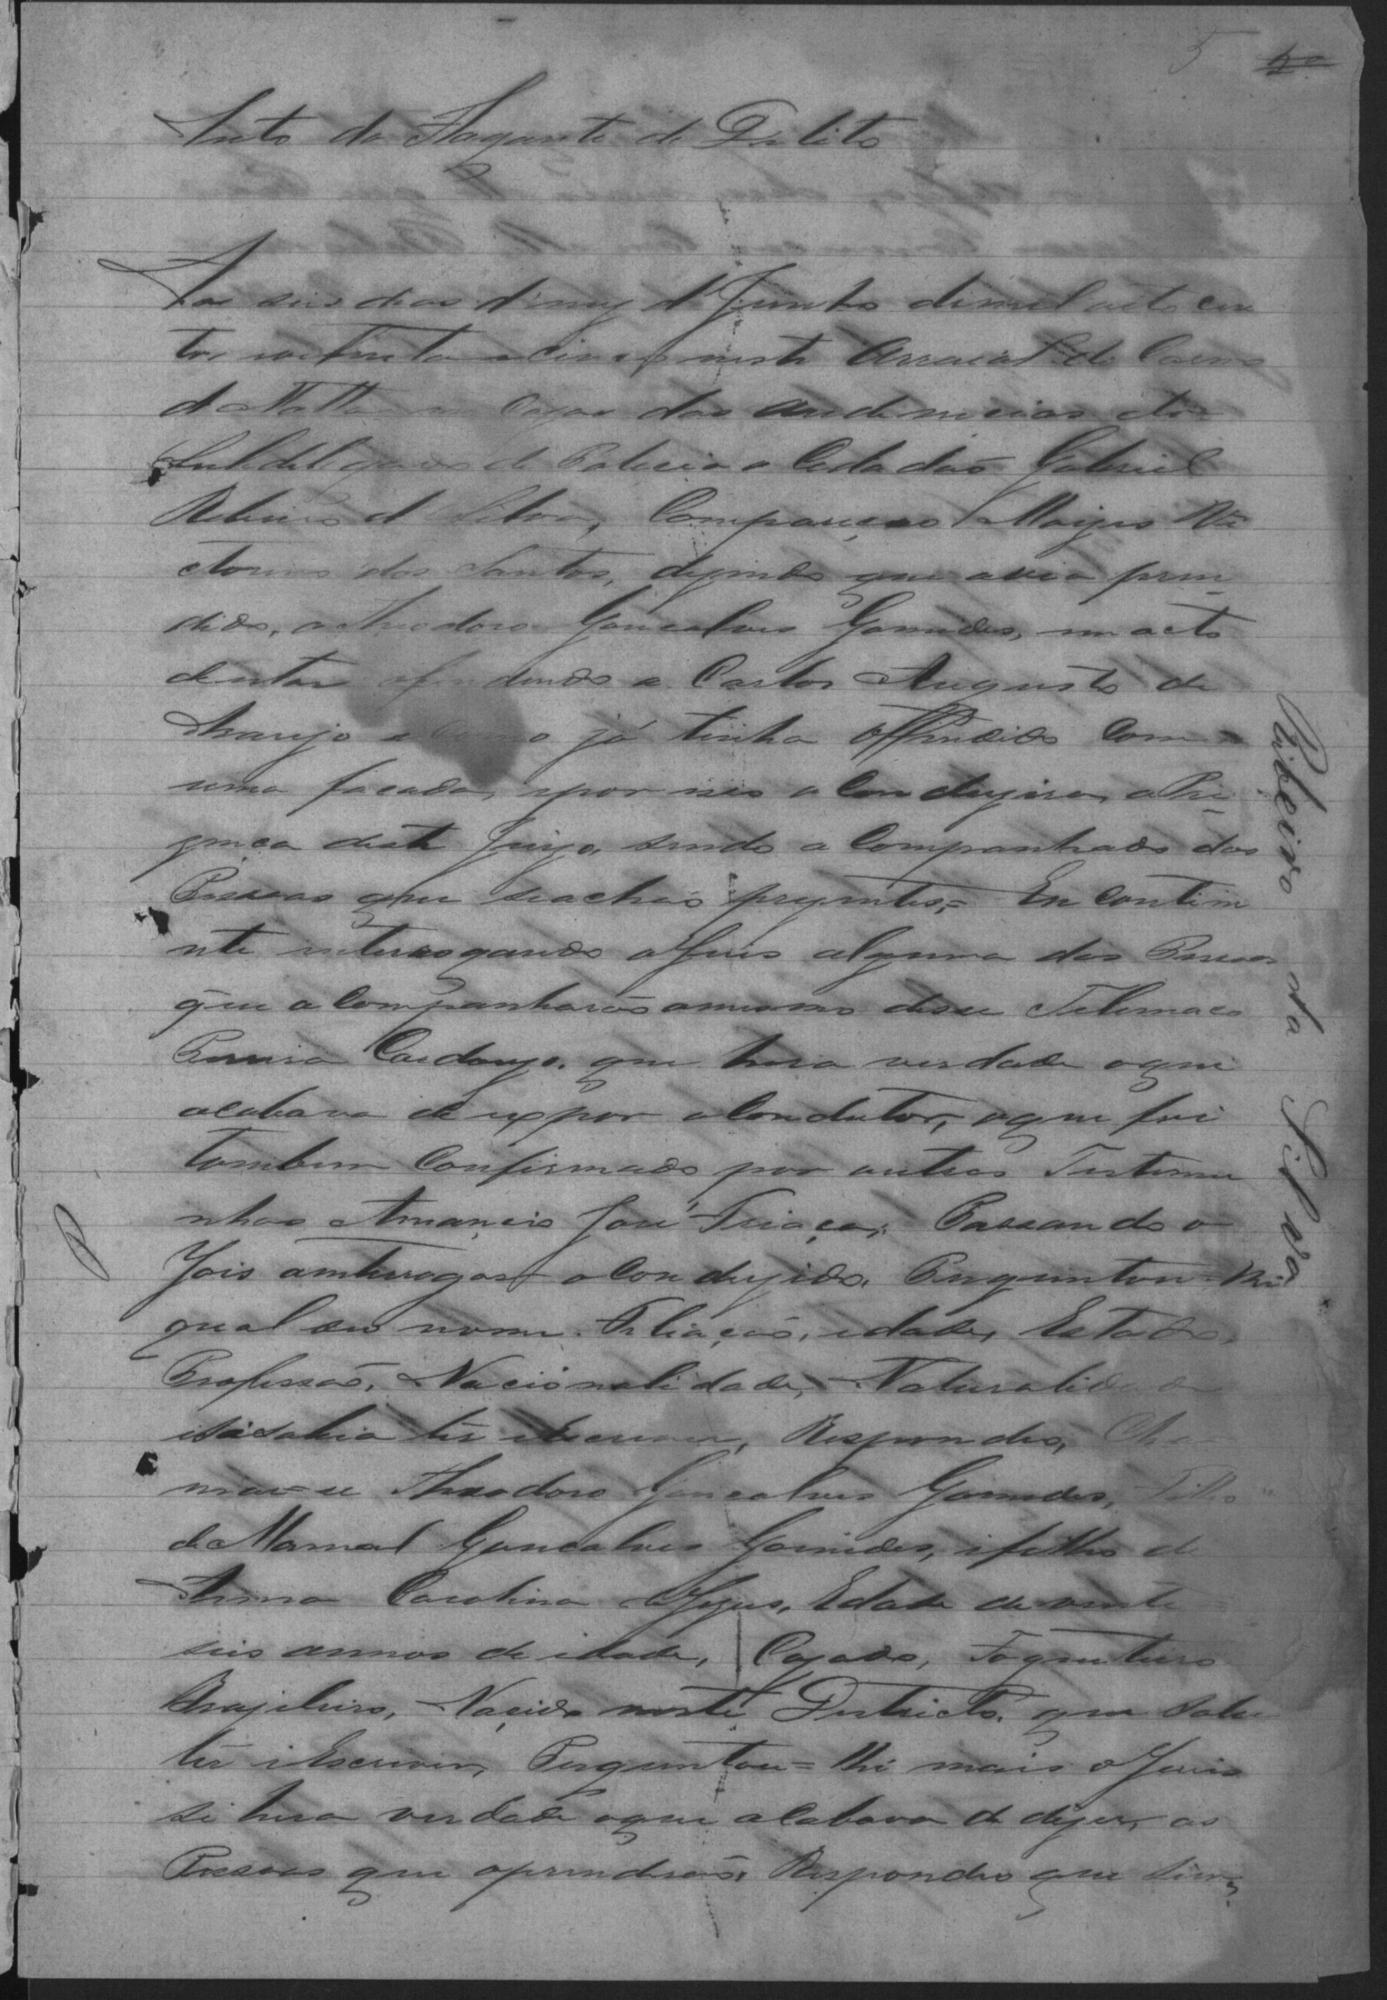 5
Auto de Flagante de Delito
Aos seis dias d'mez d'Junho de mil oito cen
tos noventa e cinco neste Arraial do Carmo
da Matta em Casa das audiencias do
Subdelegado de Policia o Cidadão Gabriel
Ribeiro d Silva, Compareceo Moizes Vi
ctorino dos Santos, dizendo que avia pren
dido, a Theodoro Gonçalves Gomides, em acto
de estar ofendendo a Carlos Augusto de
Araujo e como já tinha offendido com
uma facada, e por isso o Condugira, a Pre
zença deste Juizo, sendo a Companhado das
Pessoas que seachão prezentes,= En contin
nte interrogando o Juis alguma das Pessoas
que a Companharão o mesmo disse Telemaco
Pereira Cardozo. que hera verdade o que
acabava de expor o Condutor, o que foi
tambem Confirmado por outras Testemu
nhas Amancio José Friaça; Passando o
Jois a enterrogar o Condusido, Preguntou-lhi
qual seu nome. Filiação, idade, Estado,
Profissão, Nacionalidade, Naturalidade
isisabia lêr i Escrever, Respondeo, Cha
mar-se Theodoro Gonçalves Gomides, Filho
de Manoel Gonçalves Gomides, i filho de
Anna Carolina d Jezus, Edade de vinte
seis annos de idade, Cazado, Fogueteiro
Brazileiro, Nacido neste Destricto, que Sabe
lêr i Escrever, Preguntou=lhi mais o Juis
si hera verdade o que acabava de dizer, as
Pessoas que o prenderão, Respondeo que sim,
Ribeiro da Silva